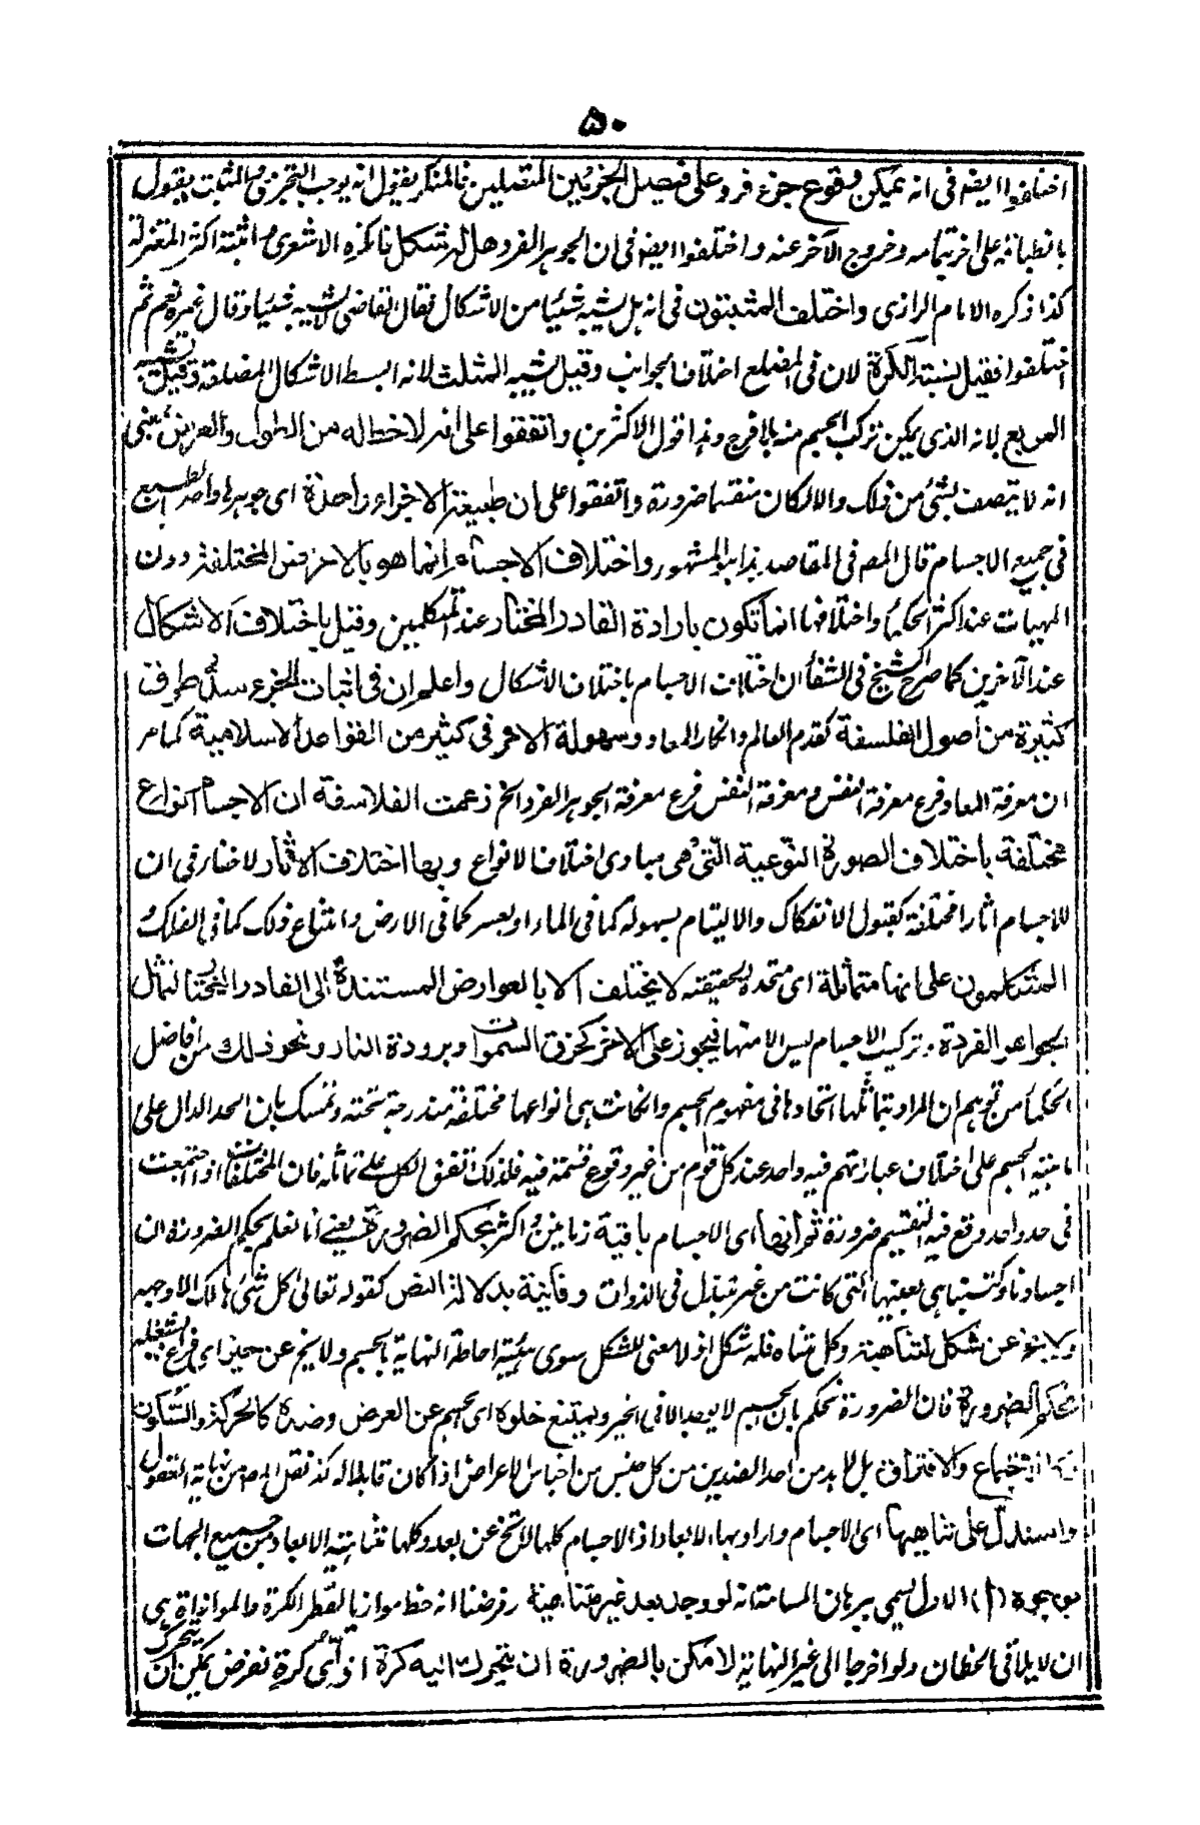 ۵۰
اختلفوا ايضا فى انه يمكن وقوع جزء فرد على فصيل الجزئين المتصلين فالمنكر يقول انه يوجب التجزى والمثبت يقول
بانطباقه على اخر بتمامه وخروج الآخر عنه واختلفوا ايضا فى ان الجوهر الفرد هل له شكل فانكره الاشعرى واثبته اكثر المعتزلة
كذا ذكره الامام الرازى واختلف المثبتون فى انه هل يشبه شيئا من الاشكال فقال القاضى لا يشبه شيئا وقال غيره نعم ثم
اختلفوا فقيل يشبه الكرة لان فى المضلع اختلاف الجوانب وقيل يشبه المثلث لانه ابسط الاشكال المضلعة وقيل يشبه
المربع لانه الذى يمكن تركب الجسم منه بلا فرج وهذا قول الاكثرين واتفقوا على انه لا حظ له من الطول والعرض يعنى
انه لا يتصف بشئ من ذلك والا لكان منقسما ضرورة واتفقوا على ان طبيعة الاجزاء واحدة اى جوهرها واحد بالطبع
فى جميع الاجسام قال المص فى المقاصد هذا هو المشهور واختلاف الاجسام انما هو بالاعراض المختلفة دون
المهيات عند اكثر الحكماء واختلافها انما تكون بارادة القادر المختار عند المتكلمين وقيل باختلاف الاشكال
عند الآخرين كما صرح الشيخ فى الشفاء ان اختلاف الاجسام باختلاف الاشكال واعلم ان فى اثبات الجزء سد طرف
كثيرة من اصول الفلسفة كقدم العالم وانكار المعاد وسهولة الامر فى كثير من القواعد الاسلامية كما مر
ان معرفة المعاد فرع معرفة النفس ومعرفة النفس فرع معرفة الجوهر الفرد الخ زعمت الفلاسفة ان الاجسام انواع
مختلفة باختلاف الصورة النوعية التى هى مبادى اختلاف الانواع وبها اختلاف الآثار لا خفاء فى ان
للاجسام اثارا مختلفة كقبول الانفكاك والاليتام بسهولة كما فى الماء او بعسر كما فى الارض وامتناع ذلك كما فى الفلك
المتكلمون على انها متماثلة اى متحدة الحقيقة لا يختلف الا بالعوارض المستندة الى القادر المختار لتماثل
الجواهر الفردة وتركيب الاجسام ليس الا منها فيجوز على الآخر كخرق السموات وبرودة النار ونحو ذلك من افاضل
الحكماء من توهم ان المراد بتماثلها اتحادها فى مفهوم الجسم وان كانت هى انواعها مختلفة مندرجة تحته وتمسك بان الحد الدال على
مابنية الجسم على اختلاف عباراتهم فيه واحد عند كل قوم من غير وقوع قسمة فيه فلذلك تفق الكل على تماثله فان المختلفات اذا جمعت
فى حد واحد وقع فيه التقسيم ضرورة ثم انها اى الاجسام باقية زمانين او اكثر بحكم الضرورة يعنى انا نعلم بحكم الضرورة ان
اجسادنا وكتبنا هى بعينها التى كانت من غير تبدل فى الذوات وفانية بدلالة النص كقوله تعالى كل شئ هالك الا وجهه
ولا يخلو عن شكل لتناهيه وكل متناه فله شكل اذ لا معنى للشكل سوى هيئة احاطة النهاية بالجسم ولا يخ عن حيز اى فراغ يشغله
بحكم الضرورة فان الضرورة تحكم بان الجسم لا يوجد الا فى الحيز ويمتنع خلوه اى الجسم عن العرض وضده كالحركة والسكون
والاجتماع والافتراق بل لابد من احد الضدين من كل جنس من اجناس الاعراض اذا كان قابلا له كذا نقل المص من نهاية العقول
واستدل على تناهيها اى الاجسام واراد بها الابعاد اذ الاجسام كلها لا تخ عن بعد وكلها متناهية الابعاد من جميع الجهات
بوجوه (ا) الاول يسمى ببرهان المسامتة انه لو وجد بعد غير متناهية وفرضنا انه خط موازيا لقطر الكرة فالموازاة هى
ان لا يلاقى الخطان ولو اخرجا الى غير النهاية لا مكن بالضرورة ان يتحرك اليه كرة اذ اى كرة تفرض يمكن ان يتحرك